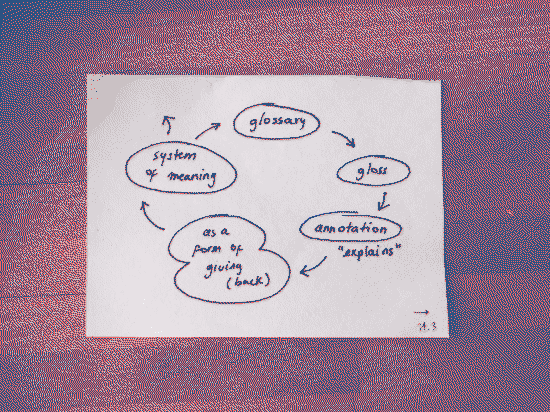 glossary
gloss
annotation
"explains"
as a
form of
giving
(back)
system
of meaning